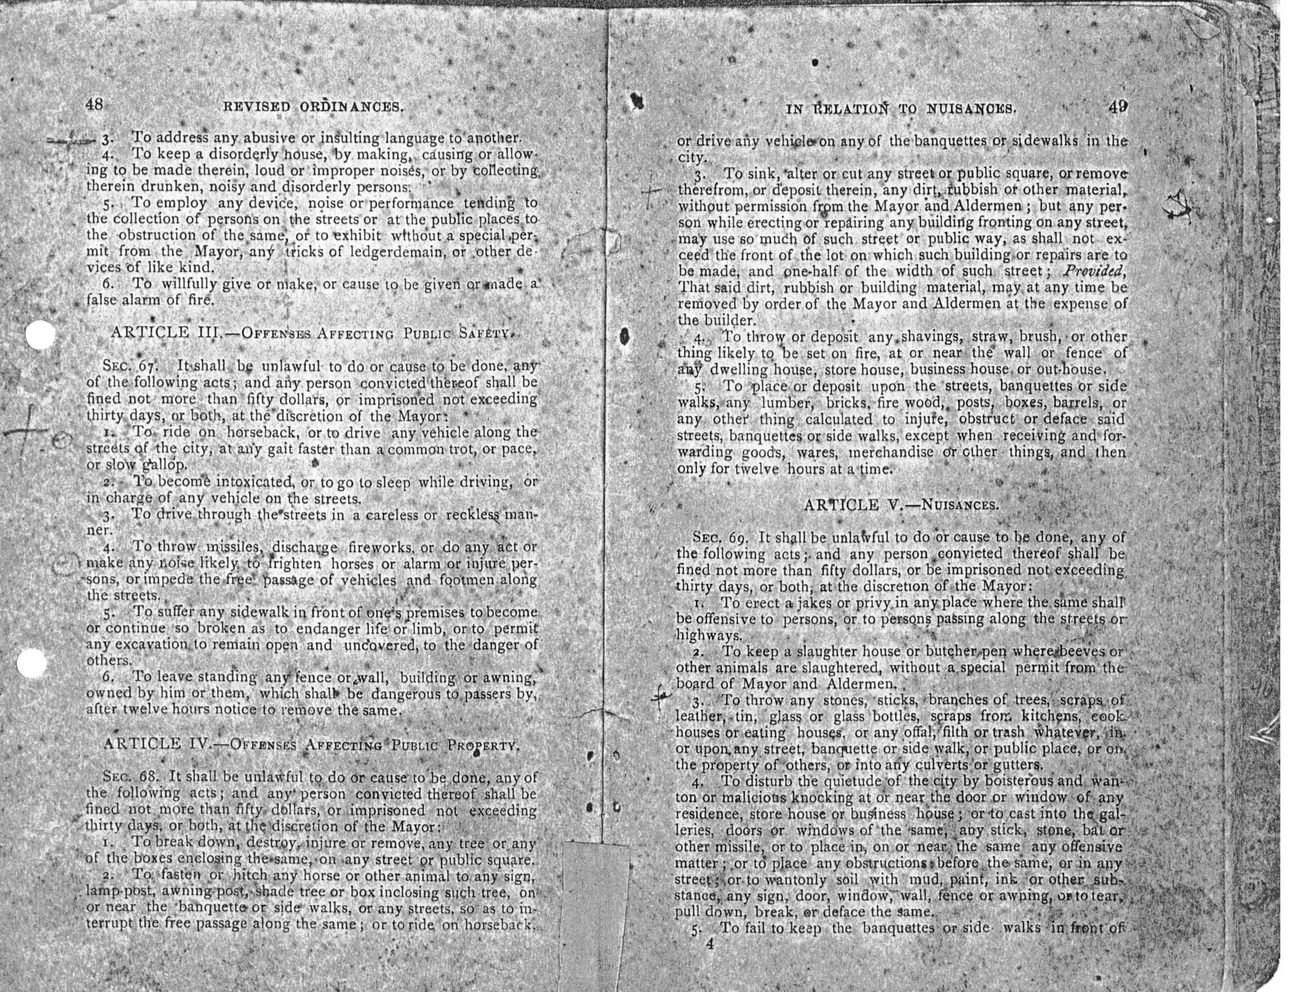 48
REVISED ORDINANCES.
3. To address any abusive or insulting language to another.
4. To keep a disorderly house, by making, causing or allow-
ing to be made therein, loud or improper noises, or by collecting
therein drunken, noisy and disorderly persons.
5. To employ any device, noise or performance tending to
the collection of persons on the streets or at the public places to
the obstruction of the same, or to exhibit without a special per-
mit from the Mayor, any tricks of ledgerdemain, or other de-
vices of like kind.
6. To willfully give or make, or cause to be given or made a
false alarm of fire.
ARTICLE III.—OFFENSES AFFECTING PUBLIC SAFETY.
SEC. 67. It shall be unlawful to do or cause to be done, any
of the following acts; and any person convicted thereof shall be
fined not more than fifty dollars, or imprisoned not exceeding
thirty days, or both, at the discretion of the Mayor:
1. To ride on horseback, or to drive any vehicle along the
streets of the city, at any gait faster than a common trot, or pace,
or slow gallop.
2. To become intoxicated, or to go to sleep while driving, or
in charge of any vehicle on the streets.
3. To drive through the streets in a careless or reckless man-
ner.
4. To throw missiles, discharge fireworks, or do any act or
make any noise likely to frighten horses or alarm or injure per-
sons, or impede the free passage of vehicles and footmen along
the streets.
5. To suffer any sidewalk in front of one's premises to become
or continue so broken as to endanger life or limb, or to permit
any excavation to remain open and uncovered, to the danger of
others.
6. To leave standing any fence or wall, building or awning,
owned by him or them, which shall be dangerous to passers by,
after twelve hours notice to remove the same.
ARTICLE IV.—OFFENSES AFFECTING PUBLIC PROPERTY.
SEC. 68. It shall be unlawful to do or cause to be done, any of
the following acts; and any person convicted thereof shall be
fined not more than fifty dollars, or imprisoned not exceeding
thirty days, or both, at the discretion of the Mayor:
1. To break down, destroy, injure or remove, any tree or any
of the boxes enclosing the same, on any street or public square.
2. To fasten or hitch any horse or other animal to any sign,
lamp-post, awning-post, shade tree or box inclosing such tree, on
or near the banquette or side walks, or any streets, so as to in-
terrupt the free passage along the same; or to ride on horseback,
IN RELATION TO NUISANCES.
49
or drive any vehicle on any of the banquettes or sidewalks in the
city.
3. To sink, alter or cut any street or public square, or remove
therefrom, or deposit therein, any dirt, rubbish or other material,
without permission from the Mayor and Aldermen; but any per-
son while erecting or repairing any building fronting on any street,
may use so much of such street or public way, as shall not ex-
ceed the front of the lot on which such building or repairs are to
be made, and one-half of the width of such street; Provided,
That said dirt, rubbish or building material, may at any time be
removed by order of the Mayor and Aldermen at the expense of
the builder.
4. To throw or deposit any shavings, straw, brush, or other
thing likely to be set on fire, at or near the wall or fence of
any dwelling house, store house, business house or out-house.
5. To place or deposit upon the streets, banquettes or side
walks, any lumber, bricks, fire wood, posts, boxes, barrels, or
any other thing calculated to injure, obstruct or deface said
streets, banquettes or side walks, except when receiving and for-
warding goods, wares, merchandise or other things, and then
only for twelve hours at a time.
ARTICLE V.—NUISANCES.
SEC. 69. It shall be unlawful to do or cause to be done, any of
the following acts; and any person convicted thereof shall be
fined not more than fifty dollars, or be imprisoned not exceeding
thirty days, or both, at the discretion of the Mayor:
1. To erect a jakes or privy in any place where the same shall
be offensive to persons, or to persons passing along the streets or
highways.
2. To keep a slaughter house or butcher pen where beeves or
other animals are slaughtered, without a special permit from the
board of Mayor and Aldermen.
3. To throw any stones, sticks, branches of trees, scraps of
leather, tin, glass or glass bottles, scraps from kitchens, cook
houses or eating houses, or any offal, filth or trash whatever, in
or upon any street, banquette or side walk, or public place, or on
the property of others, or into any culverts or gutters.
4. To disturb the quietude of the city by boisterous and wan-
ton or malicious knocking at or near the door or window of any
residence, store house or business house; or to cast into the gal-
leries, doors or windows of the same, any stick, stone, bat or
other missile, or to place in, on or near, the same any offensive
matter; or to place any obstructions before the same, or in any
street; or to wantonly soil with mud, paint, ink or other sub-
stance, any sign, door, window, wall, fence or awning, or to tear,
pull down, break, or deface the same.
5. To fail to keep the banquettes or side walks in front of
4